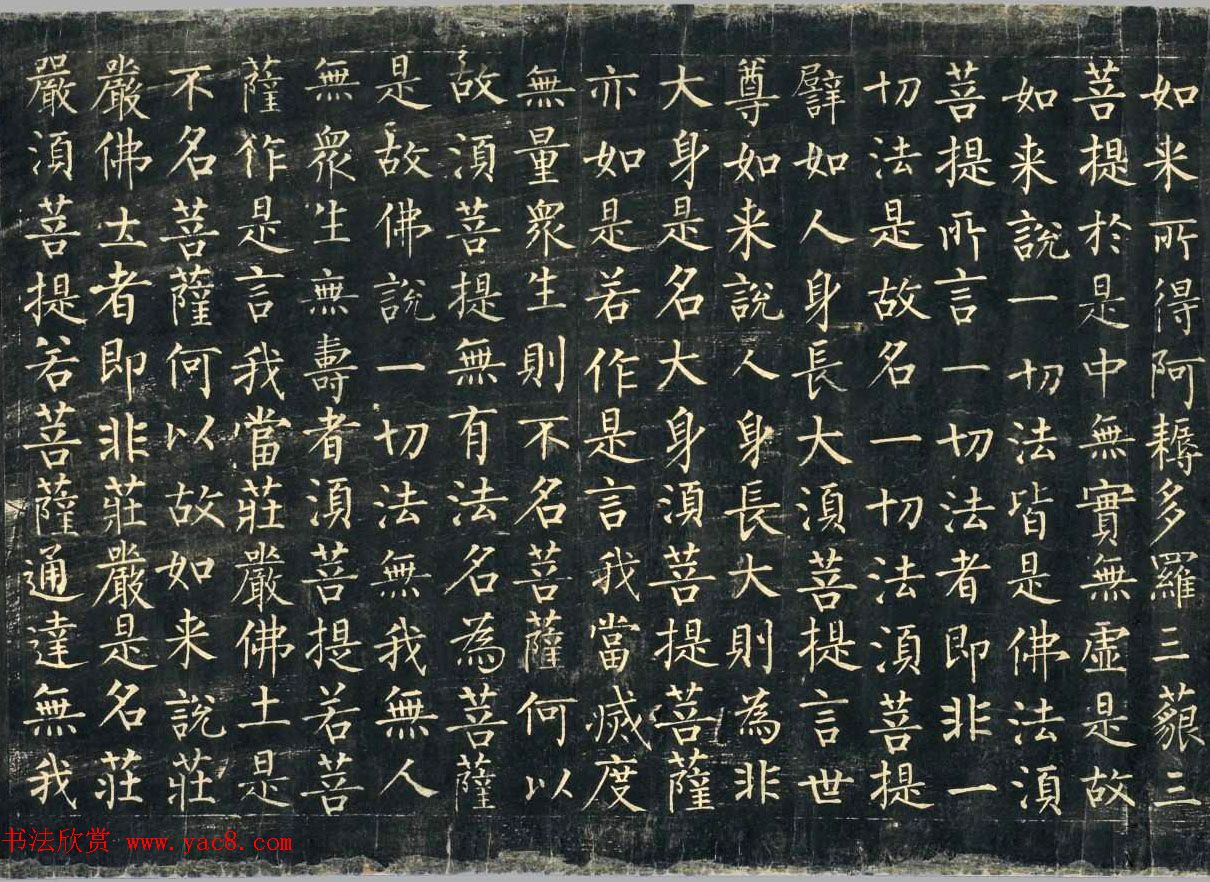 如来所得阿耨多羅三藐三
菩提於是中無實無虛是故
如来說一切法皆是佛法湏
菩提所言一切法者即非一
切法是故名一切法湏菩提
譬如人身長大湏菩提言世
尊如来說人身長大則為非
大身是名大身湏菩提菩薩
亦如是若作是言我當滅度
無量眾生則不名菩薩何以
故湏菩提無有法名為菩薩
是故佛說一切法無我無人
無眾生無壽者湏菩提若菩
薩作是言我當莊嚴佛土是
不名菩薩何以故如来說莊
嚴佛土者即非莊嚴是名莊
嚴湏菩提若菩薩通達無我
书法欣赏 www.yac8.com